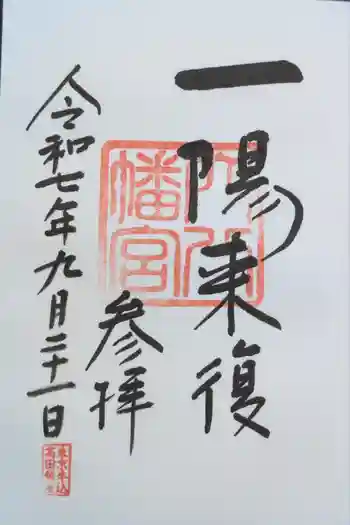 一陽来復
参拝
令和七年九月二十一日
穴八
幡宮
東京牛込